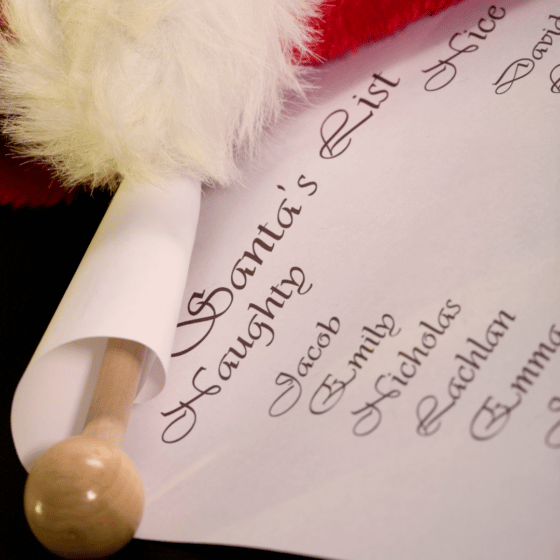 Santa's List
Naughty
Nice
Jacob
David
Emily
Nicholas
Lachlan
Emma